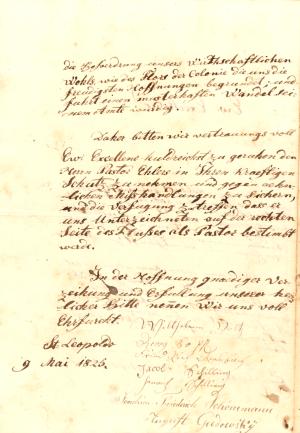 die Befoerdrung unsers Wirthschaftlichen
Wohls, wie des Flors der Colonie die uns die
freudigsten Hoffnungen begründet; und
führt einen musterhaften Wandel sei-
nem Amte würdig.
Daher bitten wir vertrauungs voll
Ew. Excellenz huldreichst zu geruhen den
Herrn Pastor Ehlers in Ihren kraeftigen
Schutz zu nehmen und gegen aehn-
lichen Misshandlungen zu sichern,
und die Verfügung zu treffen, dass er
uns Unterzeichneten auf der rechten
Seite des Flusses als Pastor bestimbt
werde.
In der Hoffnung gnädiger Ver-
zeihung und Erfüllung unserer he
licher Bitte nenen wir uns voll
Ehrfurcht.
Wilhelm
St. Leopoldo
Georg
9 Mai 1826.
Jacob Schilling
Schilling
Joachim Friederich Schünemann
August